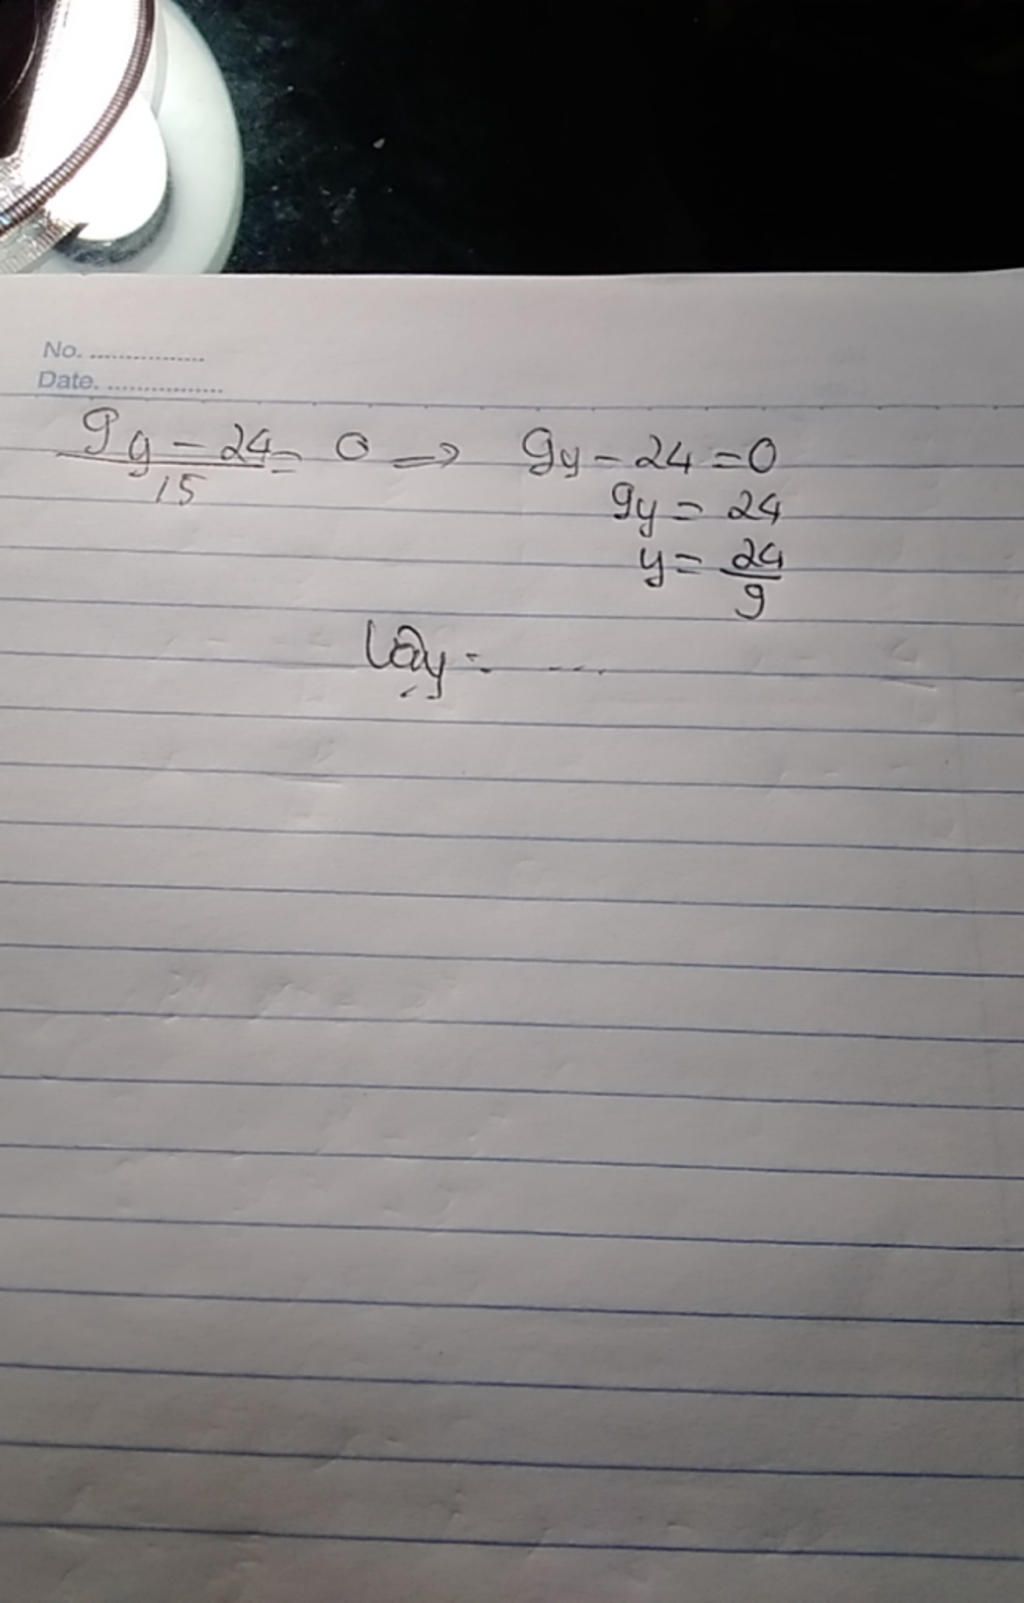 No. ...............
Date. ...............
9y - 24 / 15 = 0 => 9y - 24 = 0
9y = 24
y = 24/9
Vậy : ....